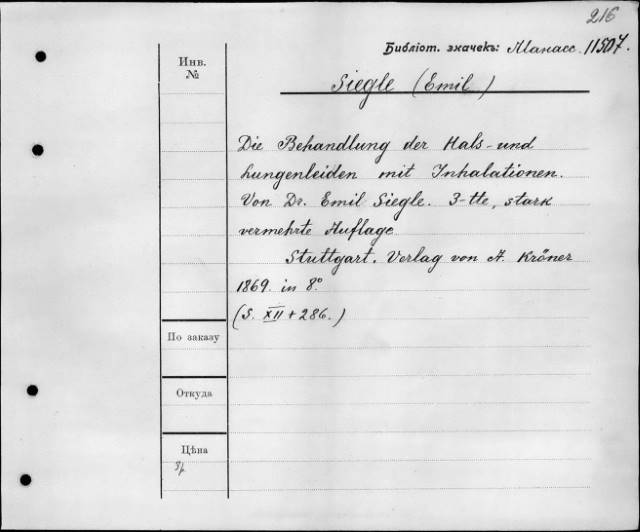 216
Библіот. значекъ: Манасс. 11507.
Инв.
№
Siegle (Emil)
Die Behandlung der Hals- und
Lungenleiden mit Inhalationen.
Von Dr. Emil Siegle. 3-tte, stark
vermehrte Auflage
Stuttgart. Verlag von A. Kröner
1869. in 8º
(S. XII + 286.)
По заказу
Откуда
Цѣна